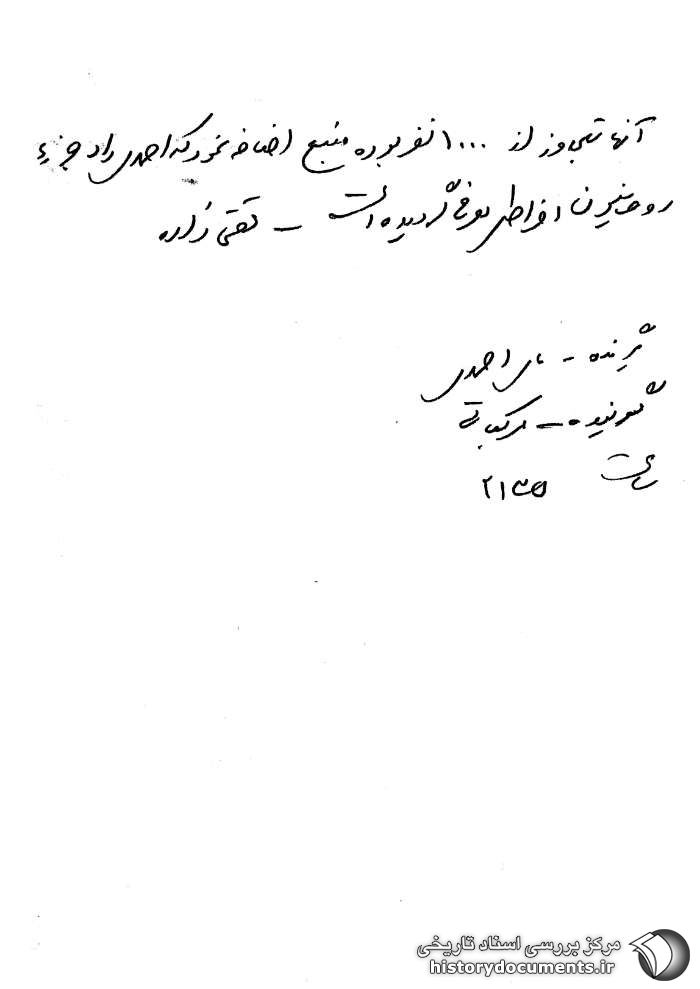 آنها متجاوز از ۱۰۰۰ نفر بوده منبع اضافه نمود که احمدی راد جزء
روحانیون افراطی معرفی گردیده است – تقی زاده
گیرنده – احمدی
گوینده –
ساعت ۲۱۳۵
مرکز بررسی اسناد تاریخی
historydocuments.ir